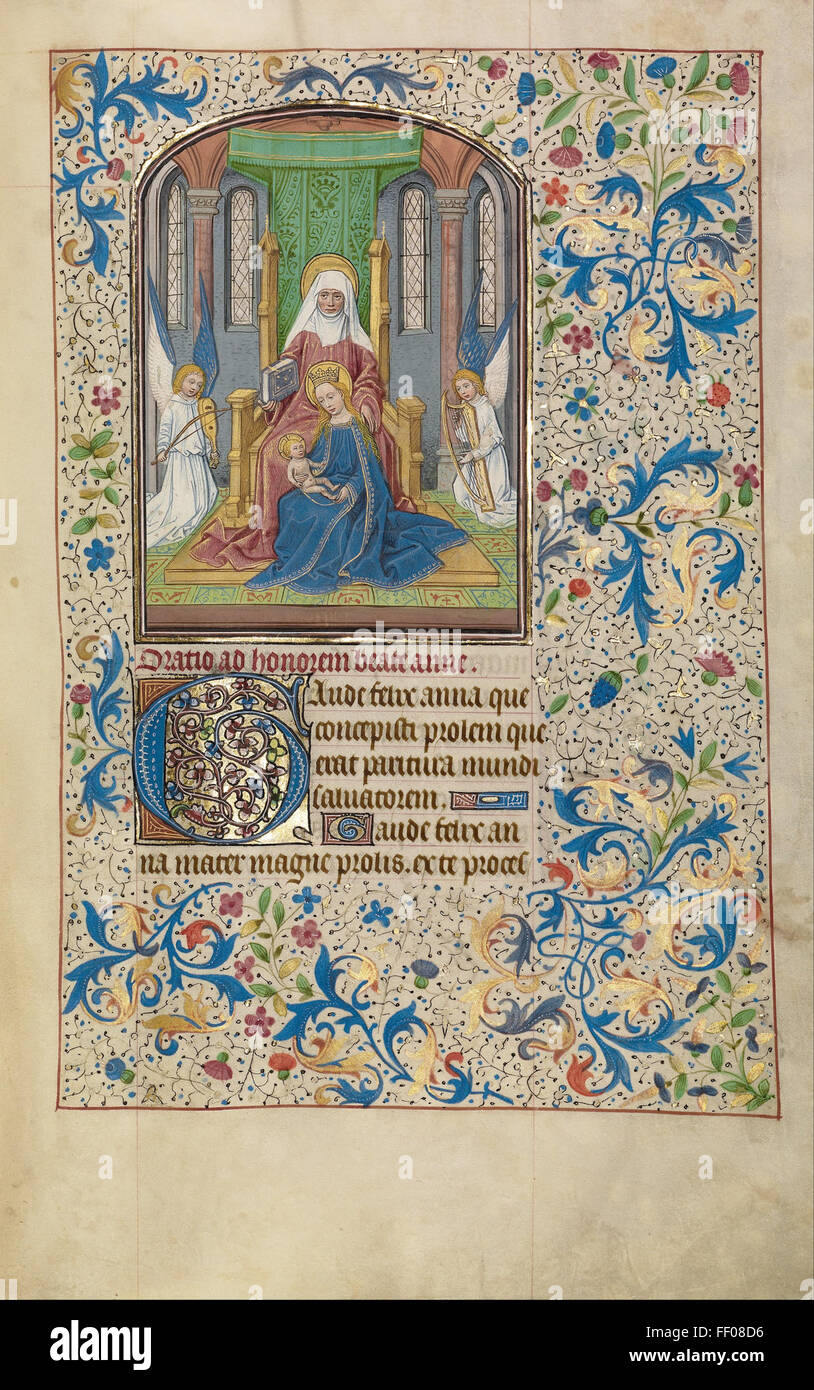 Oratio ad honorem beate anne.
Gaude felix anna que
concepisti prolem que
erat paritura mundi
salvatorem.
Gaude felix an
na mater magne prolis. ex te proces
alamy
alamy
Image ID: FF08D6
www.alamy.com